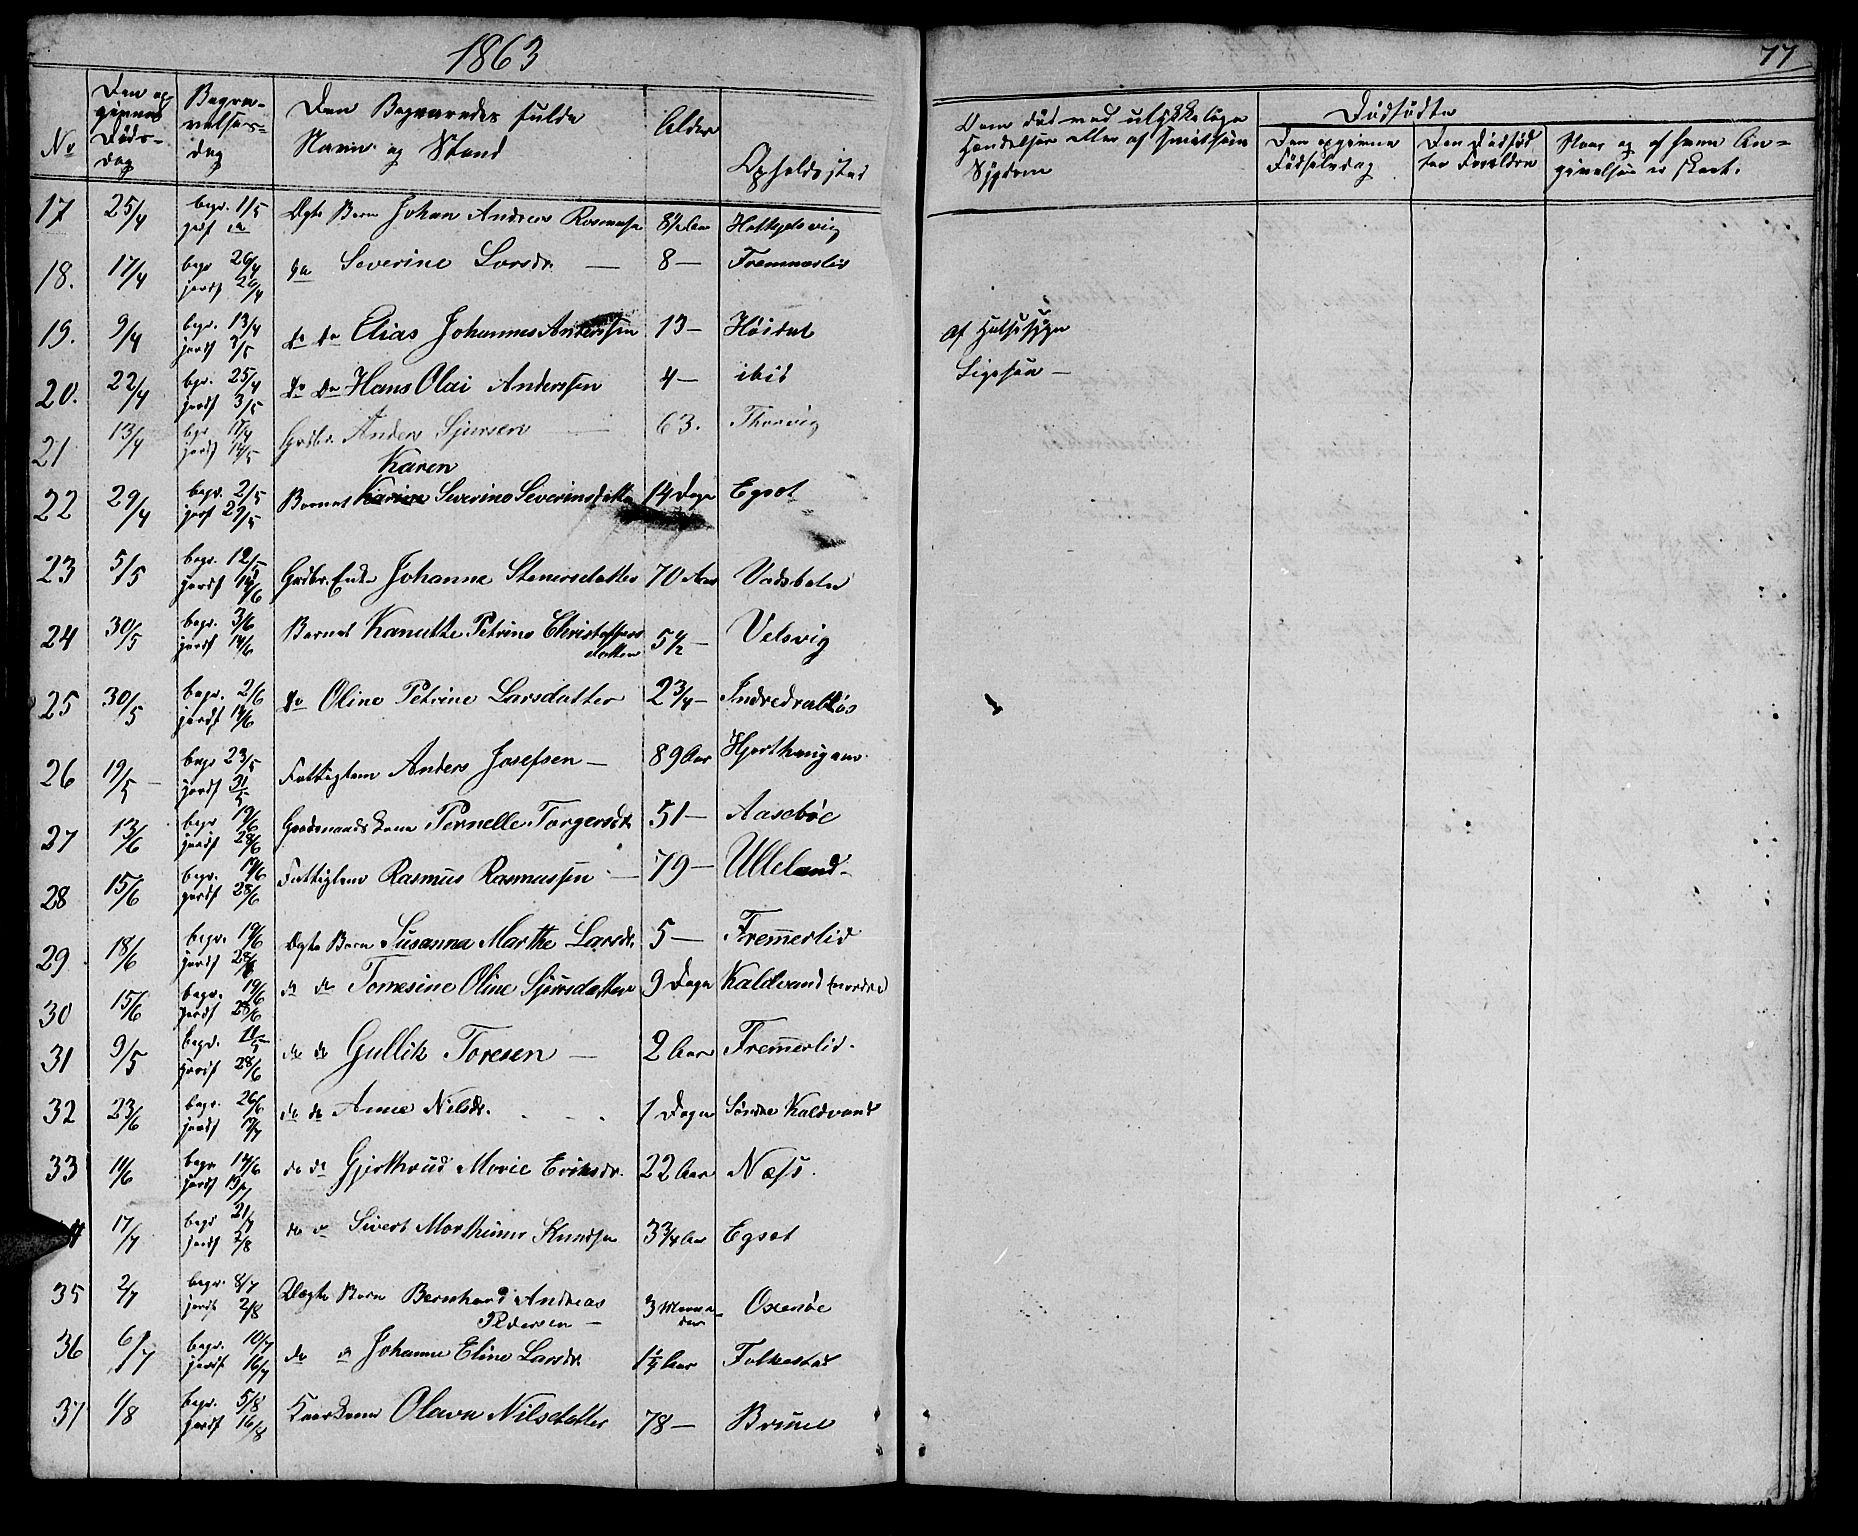 1863
77
No
Den op-
givne
Døds-
dag
Begra-
velses-
dag
Den Begravedes fulde
Navn og Stand
Alder
Opholdssted
Dem død ved ulykkelige
Hændelser eller af smitsom
Sygdom
Dødfødte
Den opgivne
Fødselsdag
Den Dødfød
tes Forældre
Naar og af hvem An-
givelsen er skeet.
17 25/4 begr. 1/5 Ægte Barn Johan Andreas Rasmuss. 8½ Aar
jordf do
18. 17/4 begr 26/4 do Severine Larsdr. — 8 — Fremmerlid
jordf 26/4
19. 9/4 begr. 13/4 do do Elias Johannes Anderssen 13 — Høidal Af Halssyge
jordf 3/5
20. 22/4 begr. 25/4 do do Hans Olai Anderssen 4 — ibid Ligesaa —
jordf 3/5
21 13/4 begr 17/4 Grdbr. Anders Sjursen — 63. Thorvig
jordf 14/5
Karen
22 29/4 begr. 2/5 Barnet Karine Severine Severinsdatter 14 Dage Egset
jorf 29/5
23 5/5 begr. 12/5 Grdbr. Enke Johanne Stenersdatter 70 Aar Vadsbøle
jordf 14/6
24 30/5 begr. 3/6 Barnet Kanutte Petrine Christoffers 5½ — Velsvig
jordf 14/6 datter
25 30/5 begr. 2/6 do Oline Petrine Larsdatter 2¾ — Indredrabløs
jordf 14/6
26 19/5 — begr 23/5 Fattiglem Anders Josefsen — 89 Aar Hjorthaugane
jordf 31/5
27 13/6 begr 19/6 Gaardmands Kone Pernelle Torgersdr. 51 — Aasebøe
jordf 28/6
28 15/6 begr. 19/6 Fattiglem Rasmus Rasmussen — 79 — Ulleland —
jordf 28/6
29 18/6 begr. 19/6 Ægte Barn Susanna Marthe Larsdr. 5 — Fremmerlid
jordf 28/6
30 15/6 begr. 19/6 do do Tomesine Oline Sjursdatter 9 Dage Kaldvand (nordre)
jordf 28/6
31 9/5 begr. do do Gullik Toresen — 2 Aar Fremmerlid.
jordf 28/6
32 23/6 begr. 26/6 do do Anne Nilsdr. 1 Dage Søndre Kaldvand
jordf
33 11/6 begr 14/6 do do Gjerthrud Marie Eriksdr. 22 Aar Næss.
jordf 19/7
17/7 begr 21/7 do do Sivert Marthinus Knudsen 3¾ Aar Egset
jordf 2/8
35 2/7 begr. 8/7 Ægte Barn Bernhard Andreas 3 Maane Oxenøe
jordf 2/8 Pedersen — der
36 6/7 begr. 10/7 do do Johanne Eline Larsdr. Aar Folkestad
jordf 16/7
37 1/8 begr. 5/8 Kaarkone Olava Nilsdatter 78 — Brune
jordf 16/8